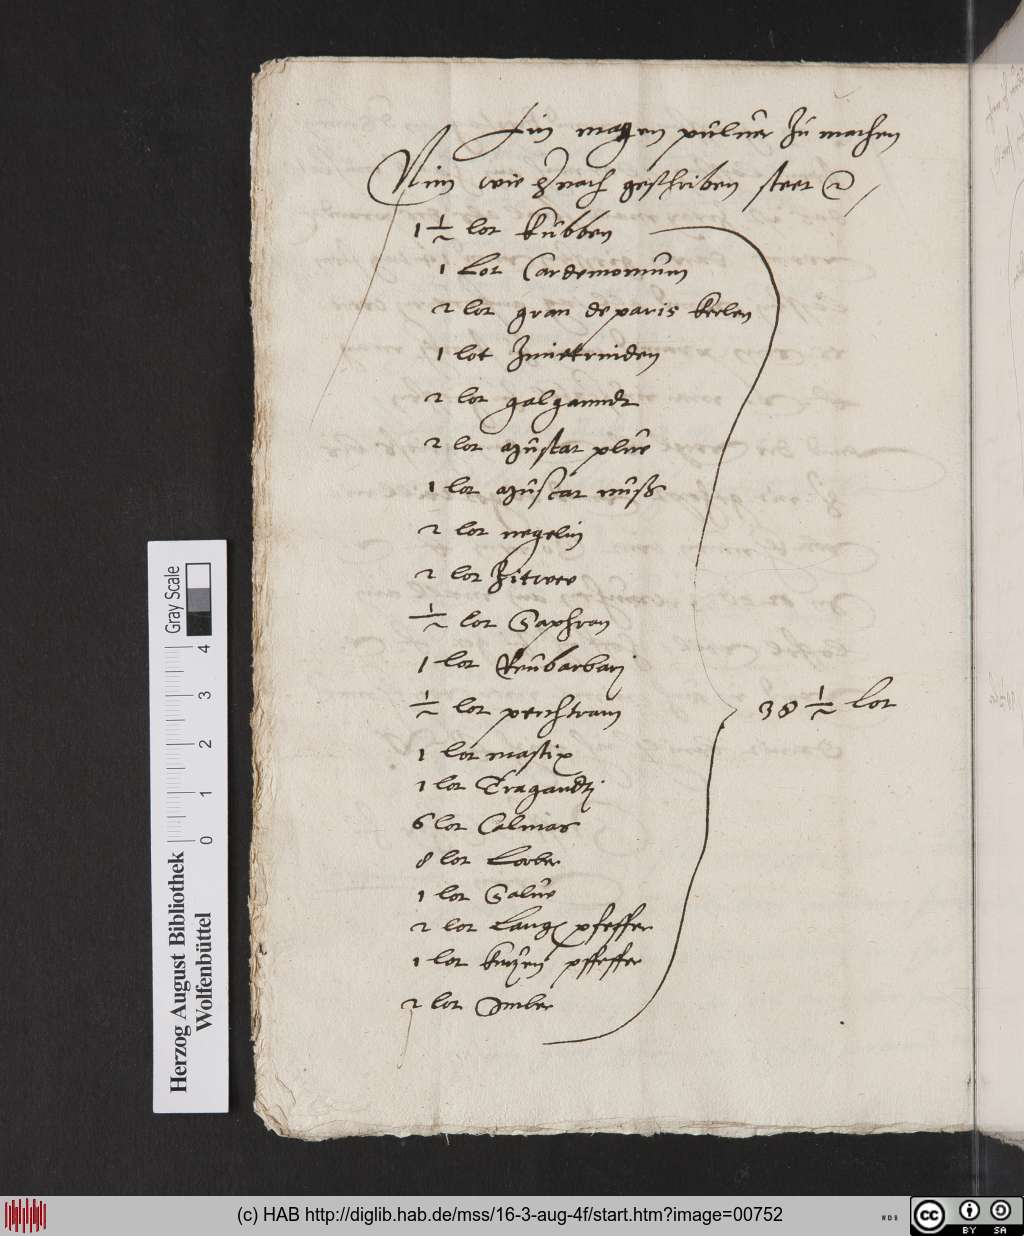 Ein magen pulver zu machen
Nim wie hernach geschriben steet
1 ½ lot Kubben
1 Lot Cardemomum
2 lot gran de paris Kerlen
1 lot Zimetrinden
2 lot galganndt
2 lot Muscat plue
1 lot Muscat nuß
2 lot negelin
2 lot Zitwer
½ lot Saphran
1 lot Reubarbarj
½ lot perchtram
1 lot mastix
1 lot Tragandtj
6 lot Calmas
8 lot Lorber
1 lot Salve
2 lot Lang pfeffer
1 lot pffeffer
2 lot Imber
38 ½ lot
Gray Scale
4
3
2
1
0
Herzog August Bibliothek
Wolfenbüttel
(c) HAB http://diglib.hab.de/mss/16-3-aug-4f/start.htm?image=00752
WDB
cc
BY SA